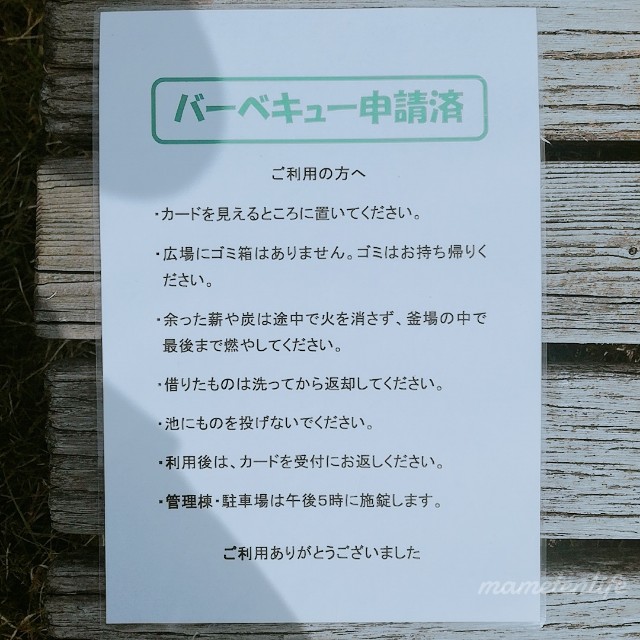 バーベキュー申請済
ご利用の方へ
・カードを見えるところに置いてください。
・広場にゴミ箱はありません。ゴミはお持ち帰りく
ださい。
・余った薪や炭は途中で火を消さず、釜場の中で
最後まで燃やしてください。
・借りたものは洗ってから返却してください。
・池にものを投げないでください。
・利用後は、カードを受付にお返しください。
・管理棟・駐車場は午後5時に施錠します。
ご利用ありがとうございました
mametenlife